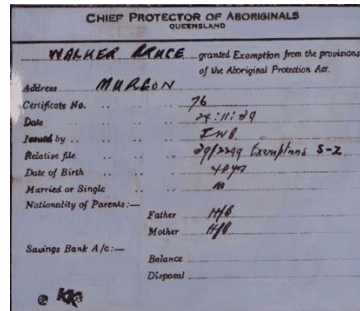 CHIEF PROTECTOR OF ABORIGINALS
QUEENSLAND
WALKER BRUCE granted Exemption from the provisions
of the Aboriginal Protection Act.
Address MURGON
Certificate No. .. .. .. 76
Date .. .. .. 24:11:39
Issued by .. .. .. ..
Relative file .. .. .. 39/2299 Exemptions S-Z
Date of Birth .. ..
Married or Single .. .. M
Nationality of Parents:—
Father H/B
Mother H/B
Savings Bank A/c:—
Balance
Disposal